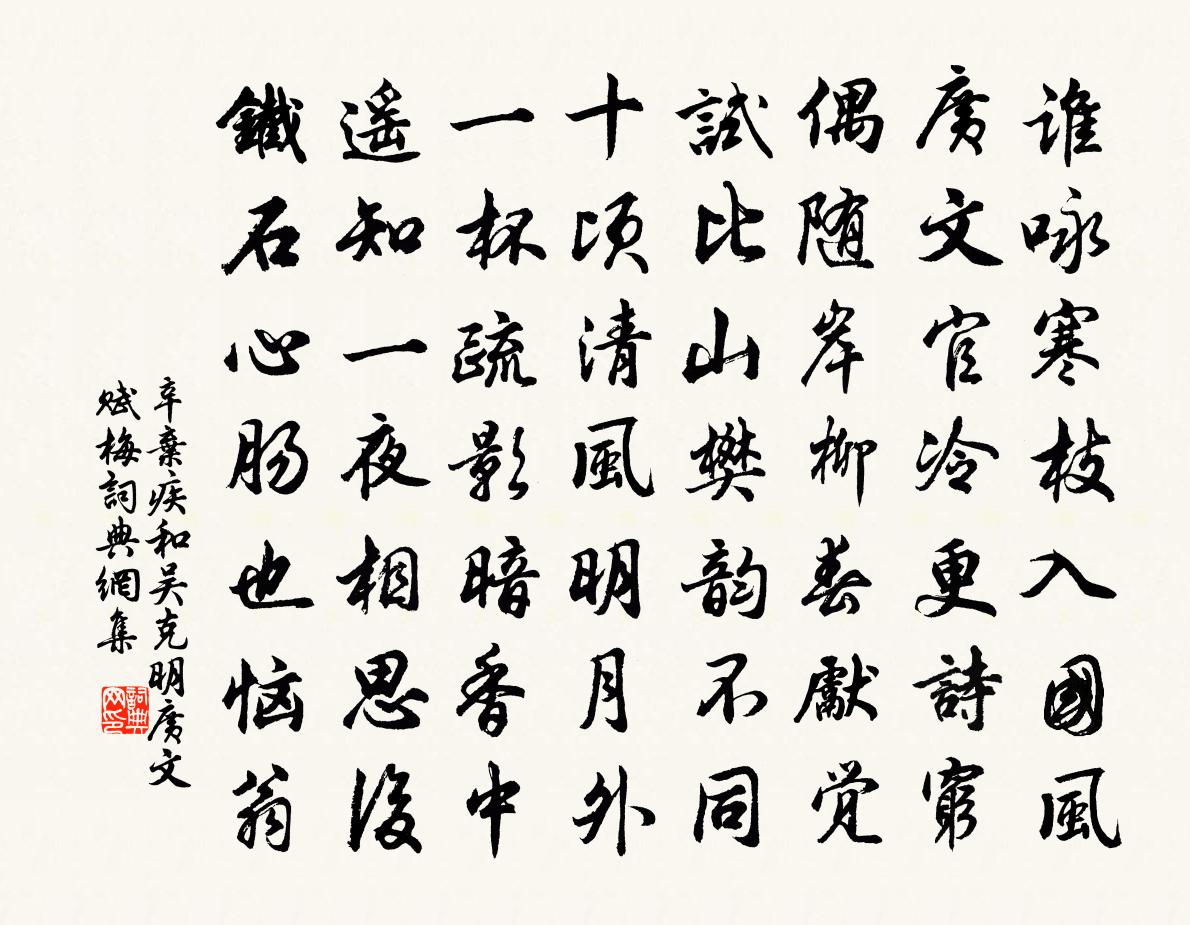 谁咏寒枝入國風
廣文官冷更詩窮
偶随岸柳春獻觉
試比山樊韵不同
十頃清風明月外
一杯疏影暗香中
遥知一夜相思後
鐵石心肠也恼翁
辛棄疾和吴克明廣文
赋梅詞典網集
詞典
网印